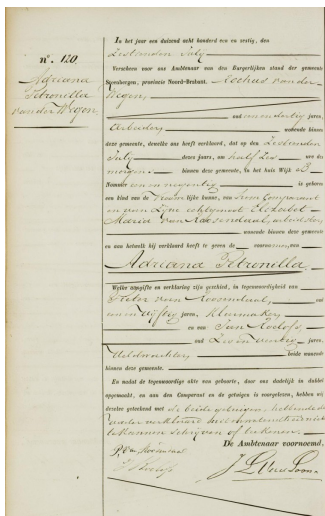 n°. 120
Adriana
Petronilla
van der Wegen
In het jaar een duizend acht honderd een en zestig, den
zestienden July
Verscheen voor ons Ambtenaar van den Burgerlijken stand der gemeente
Steenbergen, provincie Noord-Brabant. Rochus van der
Wegen,
oud een en dertig jaren,
Arbeider, wonende binnen
deze gemeente, dewelke ons heeft verklaard, dat op den zestienden
July dezes jaars, om half zes ure des
morgens binnen deze gemeente, in het huis Wijk B
Nommer een en neventig is geboren
een kind van de Vrouwelijke kunne, van hem Comparant
en van zijne echtgenoot Elizabet
Maria van Roosendaal, arbeidster,
wonende binnen deze gemeente
en aan hetwelk hij verklaard heeft te geven de voornamen, van
Adriana Petronilla
Welke aangifte en verklaring zijn geschied, in tegenwoordigheid van
Pieter van Roosendaal, oud
een en vijftig jaren, Kleermaker,
en van Jan Roelofs,
oud jaren,
Veldwachter, beide wonende
binnen deze gemeente.
En nadat de tegenwoordige akte van geboorte, door ons dadelijk in dubbel
opgemaakt, en aan den Comparant en de getuigen is voorgelezen, hebben wij
dezelve geteekend met de beide getuigen, hebbende de
vader verklaard
te kunnen schrijven of teekenen.
De Ambtenaar voornoemd,
P. van Roosendaal